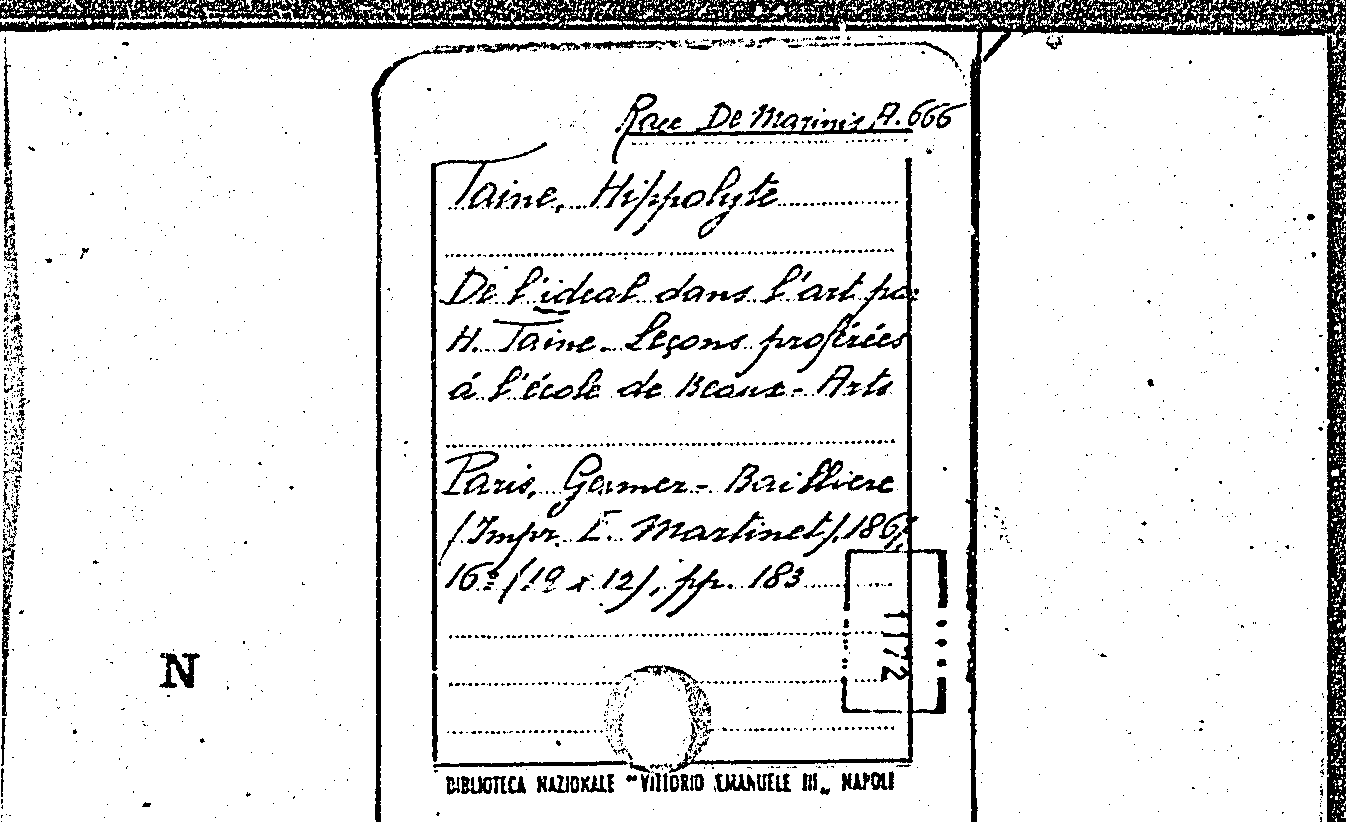 Racc De Marinis A. 666
Taine, Hippolyte
De l'ideal dans l'art par
H. Taine. Leçons proférées
á l'école de Beaux-Arts
Paris, Germer-Bailliere
(Impr. E. Martinet), 1867,
16º (19 x 12), pp. 183
1172
N
BIBLIOTECA NAZIONALE "VITTORIO EMANUELE III„ NAPOLI